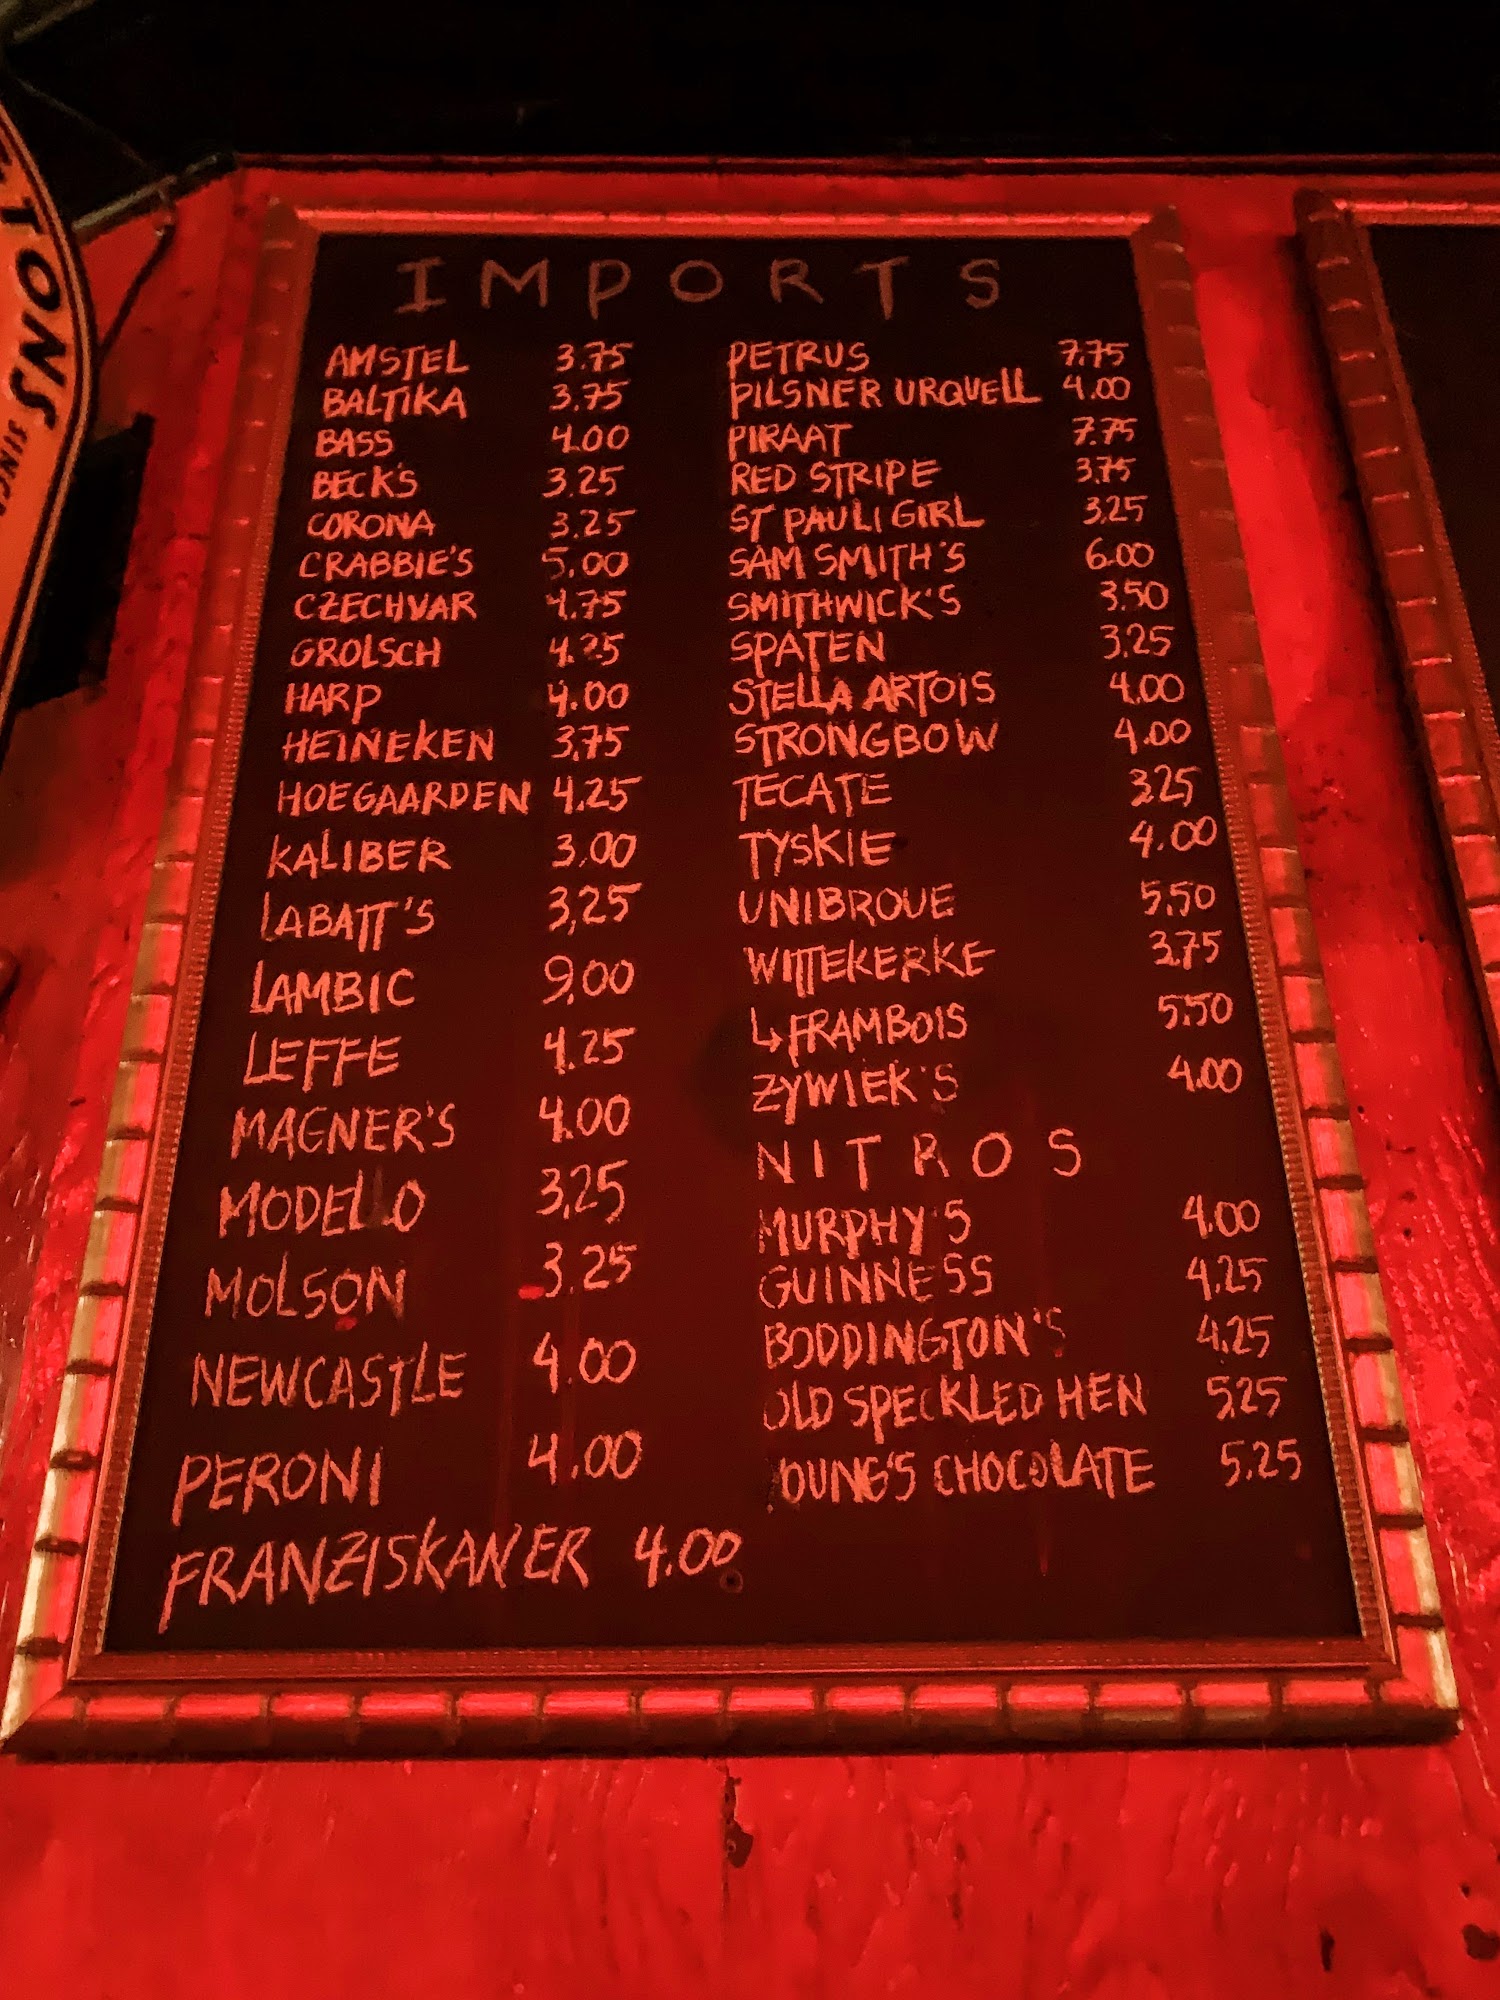 IMPORTS
AMSTEL 3.75
BALTIKA 3.75
BASS 4.00
BECK'S 3.25
CORONA 3.25
CRABBIE'S 5.00
CZECHVAR 4.75
GROLSCH 4.25
HARP 4.00
HEINEKEN 3.75
HOEGAARDEN 4.25
KALIBER 3.00
LABATT'S 3.25
LAMBIC 9.00
LEFFE 4.25
MAGNER'S 4.00
MODELO 3.25
MOLSON 3.25
NEWCASTLE 4.00
PERONI 4.00
FRANZISKANER 4.00
PETRUS 7.75
PILSNER URQUELL 4.00
PIRAAT 7.75
RED STRIPE 3.75
ST PAULI GIRL 3.25
SAM SMITH'S 6.00
SMITHWICK'S 3.50
SPATEN 3.25
STELLA ARTOIS 4.00
STRONGBOW 4.00
TECATE 3.25
TYSKIE 4.00
UNIBROUE 5.50
WITTEKERKE 3.75
↳ FRAMBOIS 5.50
ZYWIEK'S 4.00
NITROS
MURPHY'S 4.00
GUINNESS 4.25
BODDINGTON'S 4.25
OLD SPECKLED HEN 5.25
YOUNG'S CHOCOLATE 5.25